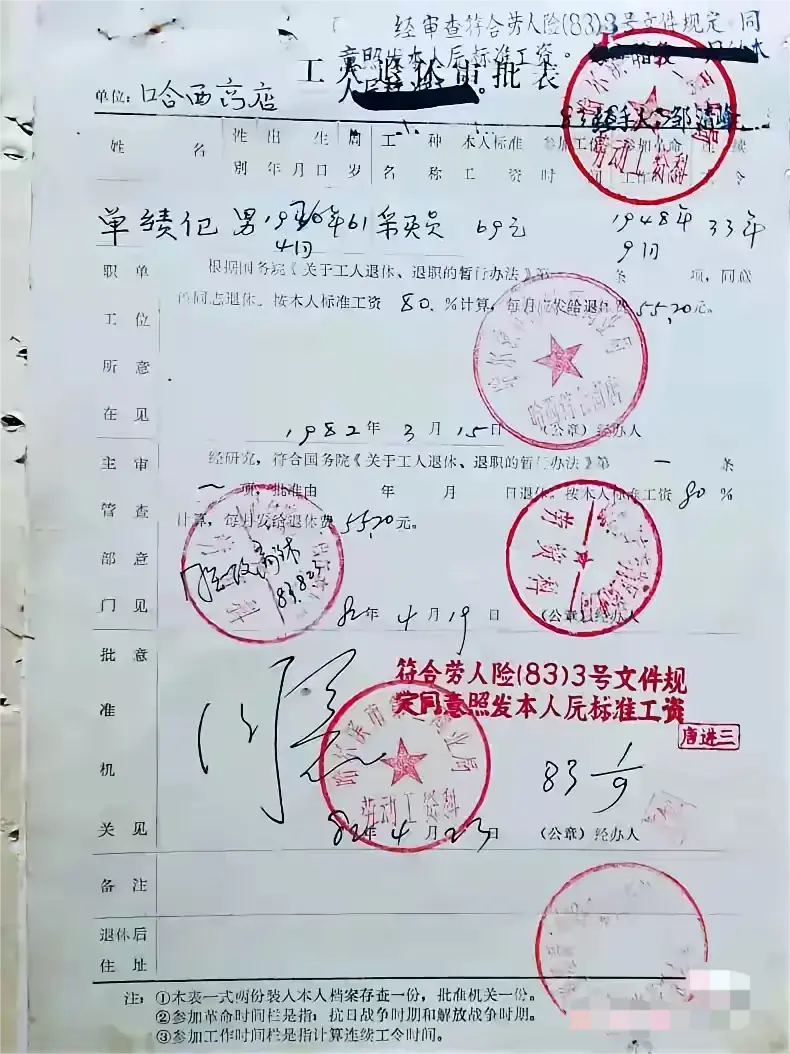 经审查符合劳人险(83)3号文件规定 同
意照发本人原标准工资。
工人退休审批表
单位：哈西商店
经手人：邹清峰
姓名 性别 出生年月日 周岁 工种名称 本人标准工资 参加工作时间 参加革命工作时间 连续工令
单绩纪 男 61 采买员 69元 1948年9月 33年
职工所在单位意见
根据国务院《关于工人退休、退职的暂行办法》第 条 项，同意
同志退休。按本人标准工资 80 %计算，每月应发给退休费 55.20 元。
1982年 3月 15日 （公章）经办人
主管部门审查意见
经研究，符合国务院《关于工人退休、退职的暂行办法》第 一 条
一 项，批准由 年 月 日退休。按本人标准工资 80 %
计算，每月发给退休费 55.20 元。
劳资科
82年 4月 19日 （公章）经办人
批准机关意见
符合劳人险(83)3号文件规
定同意照发本人原标准工资
唐进三
83 1/9
劳动工资科
82年 4月 23日 （公章）经办人
备注
退休后住址
注：①本表一式两份装入本人档案存查一份，批准机关一份。
②参加革命时间栏是指：抗日战争时期和解放战争时期。
③参加工作时间栏是指计算连续工令时间。